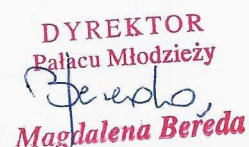 DYREKTOR
Pałacu Młodzieży
Magdalena Bereda